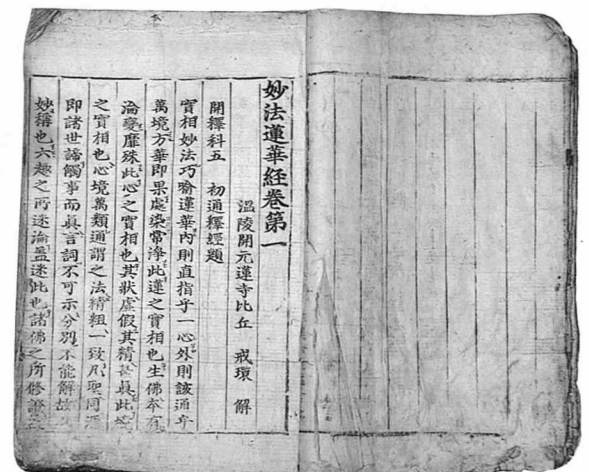 妙法蓮華經卷第一
溫陵開元蓮寺比丘 戒環 解
開釋科五 初通釋經題
實相妙法巧喻蓮華內則直指乎一心外則該通乎
萬境方華即果處染常淨此蓮之實相也生佛本有
淪變靡殊此心之實相也其狀虛假其精甚眞此境
之實相也心境萬類通謂之法精粗一致凡聖同源
即諸世諦觸事而眞言詞不可示分別不能解故
妙稱也六趣之所迷淪盖迷此也諸佛之所修證